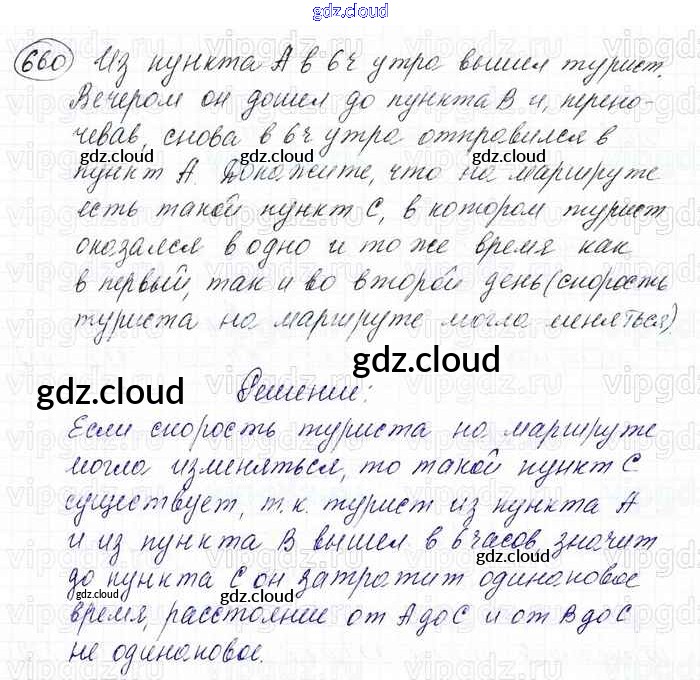 gdz.cloud
660 Из пункта А в 6ч утра вышел турист.
Вечером он дошел до пункта В и, перено-
чевав, снова в 6ч утра отправился в
пункт А. Докажите, что на маршруте
есть такой пункт С, в котором турист
оказался в одно и то же время как
в первый, так и во второй день (скорость
туриста на маршруте могла меняться)
Решение:
Если скорость туриста на маршруте
могла изменяться, то такой пункт С
существует, т.к. турист из пункта А
и из пункта В вышел в 6 часов, значит
до пункта С он затратит одинаковое
время, расстояние от А до С и от В до С
не одинаковое.